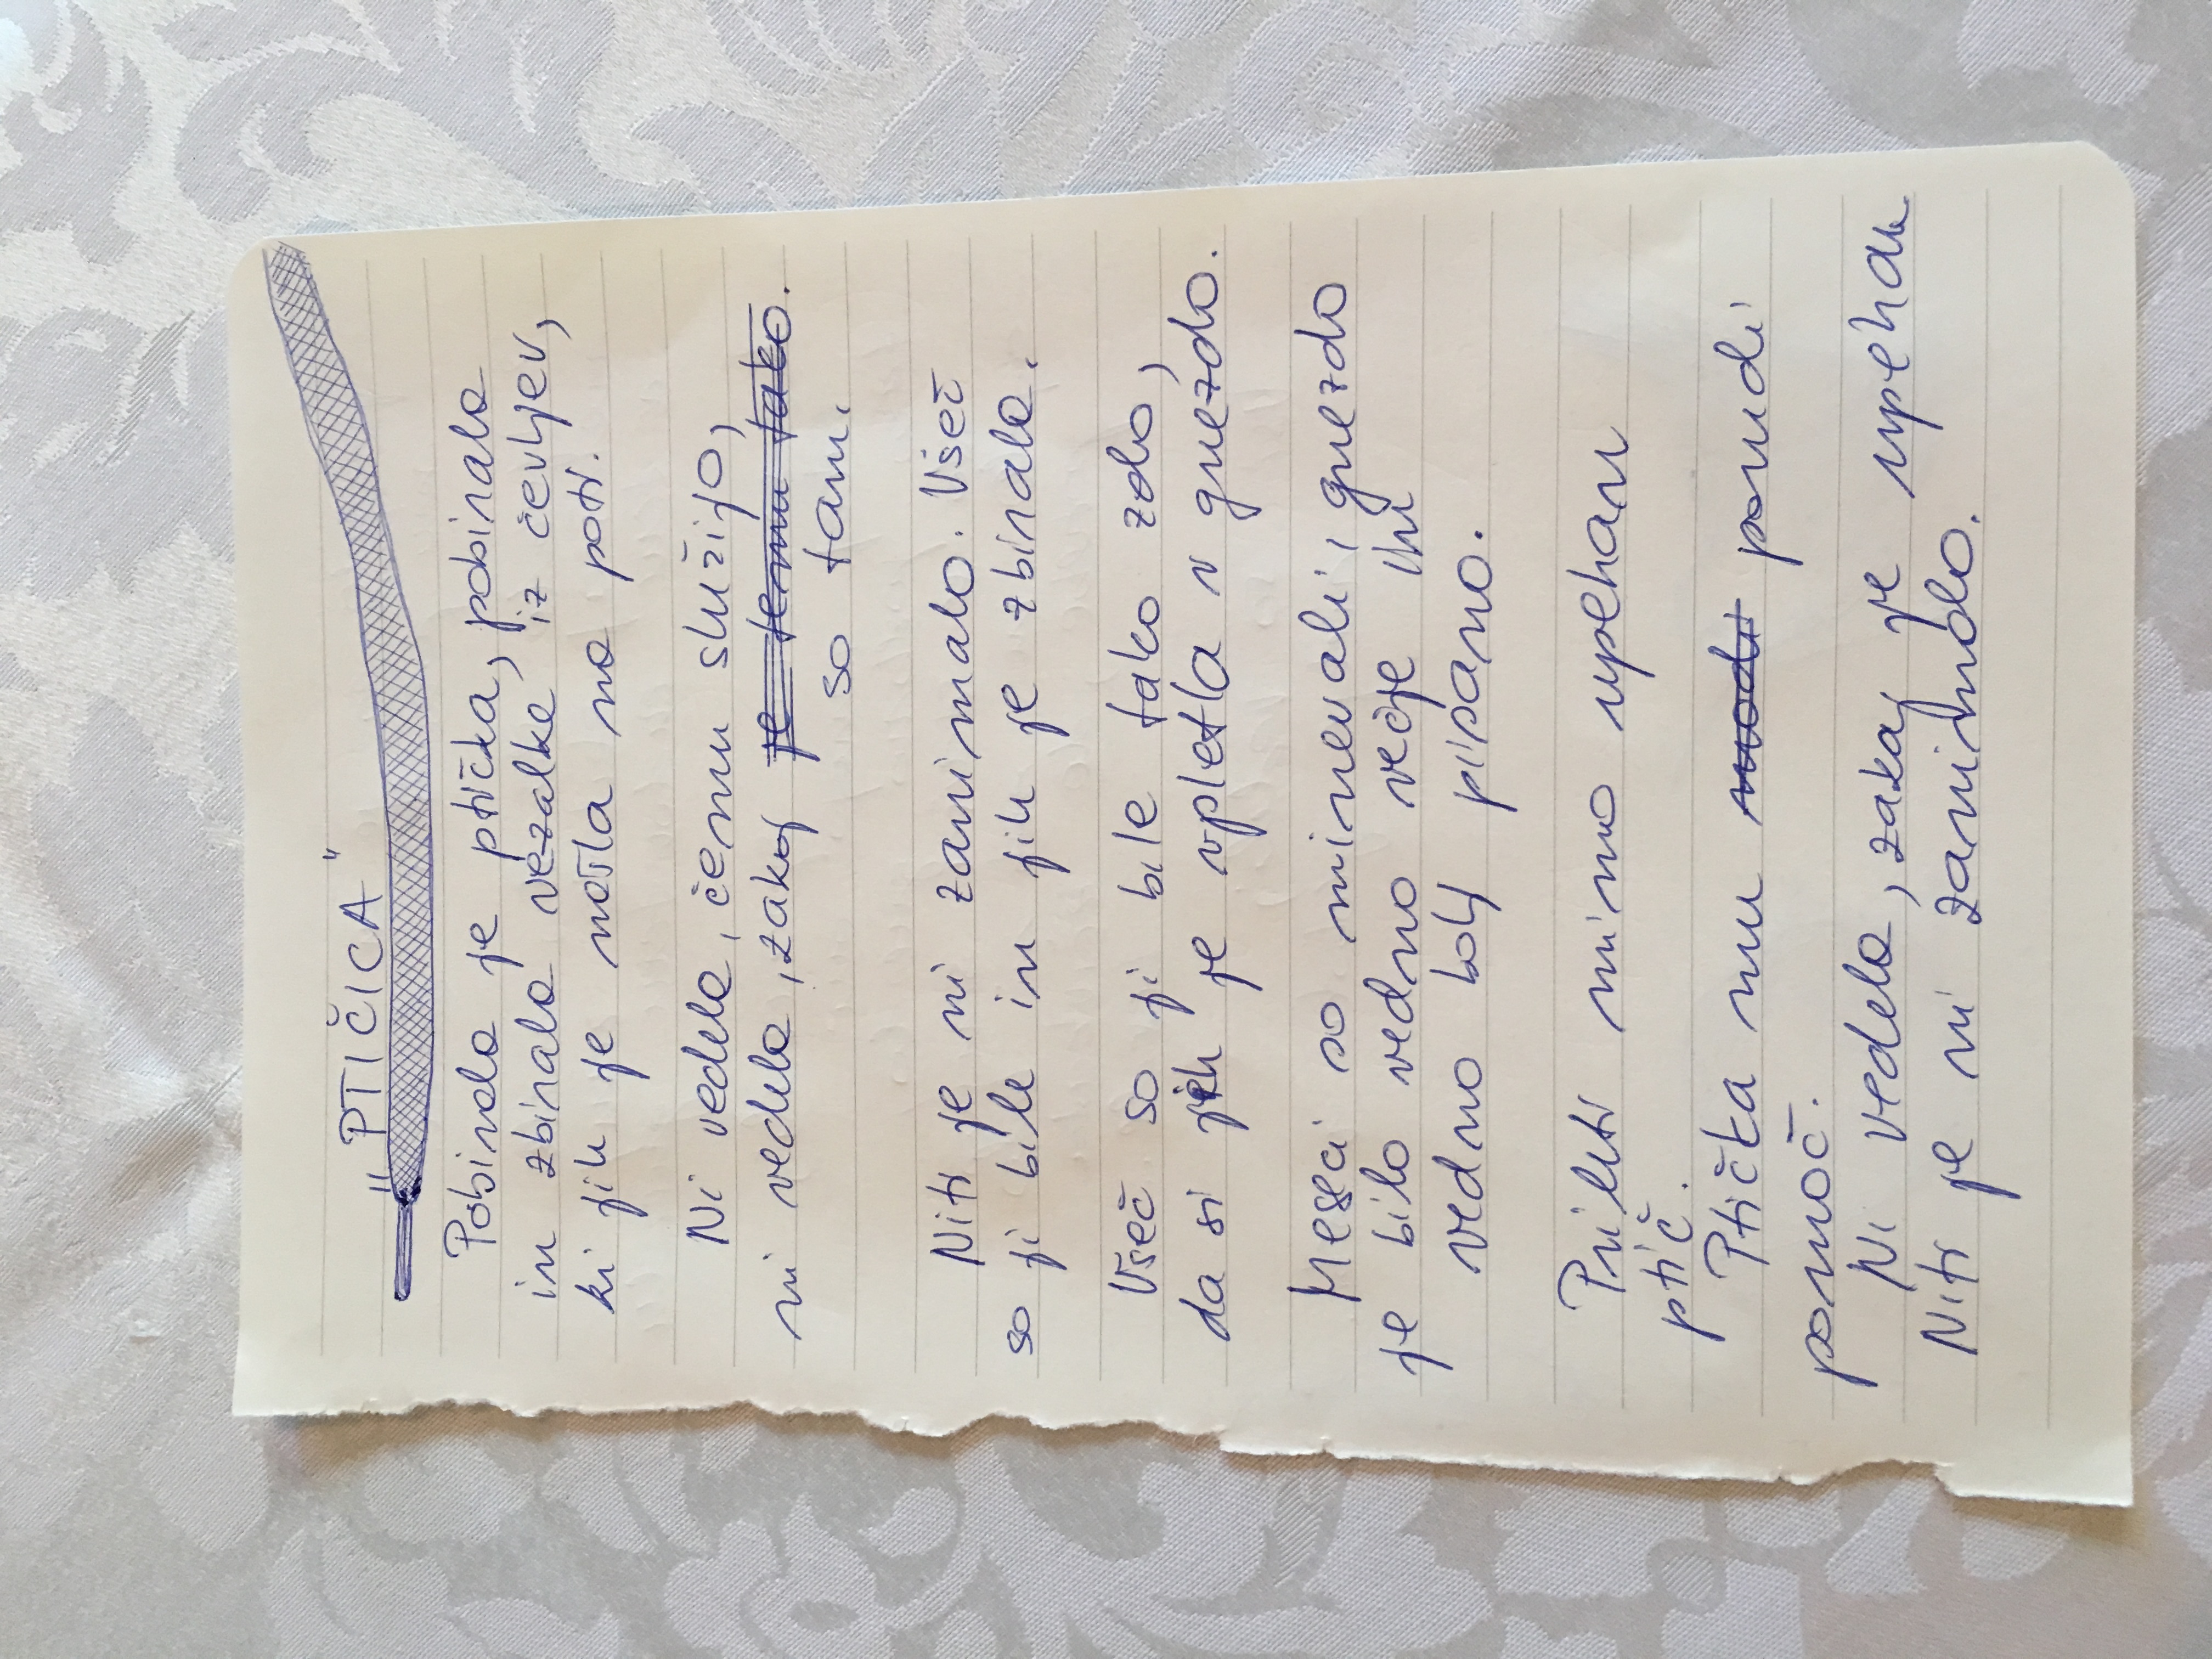 "PTIČICA"
Pobirala je ptička, pobirala
in zbirala vezalke, iz čevljev,
ki jih je našla na poti.
Ni vedela, čemu služijo,
ni vedela, zakaj je temu tako.
so tam.
Niti je ni zanimalo. Všeč
so ji bile in jih je zbirala.
Všeč so ji bile tako zelo,
da si jih je vpletla v gnezdo.
Meseci so minevali, gnezdo
je bilo vedno večje in
vedno bolj pisano.
Prileti mimo upehan
ptič.
Ptička mu nudi ponudi
pomoč.
Ni vedela, zakaj je upehan
Niti je ni zanimalo.